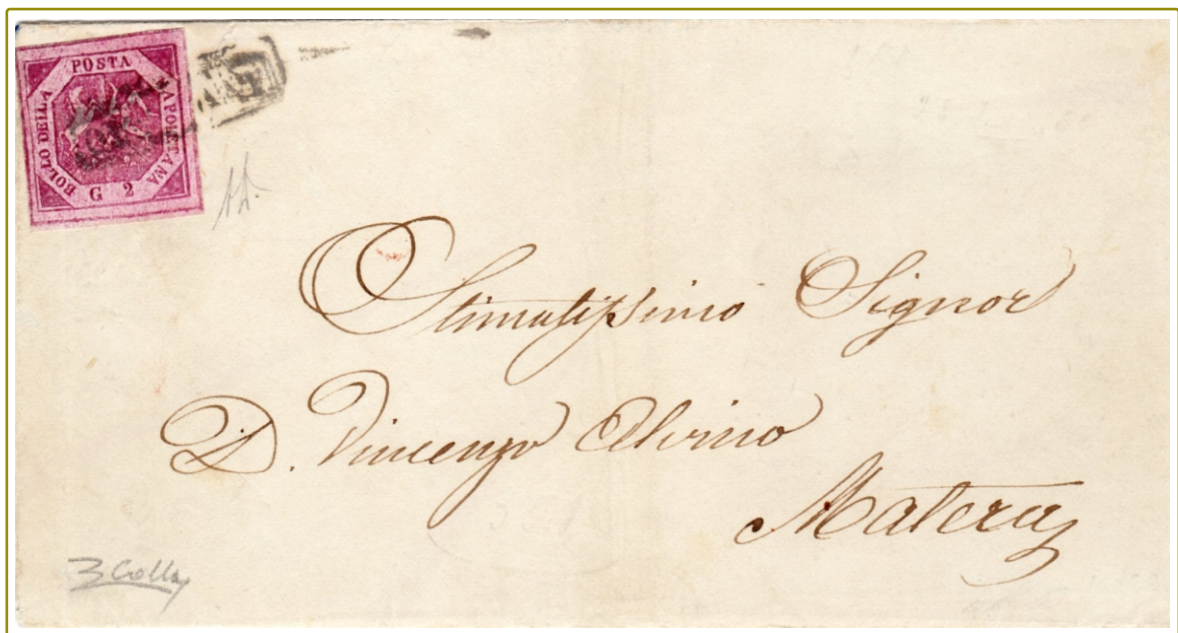 BOLLO DELLA POSTA NAPOLETANA
G 2
Stimatissimo Signor
D. Vincenzo Alvino
Matera
Colla